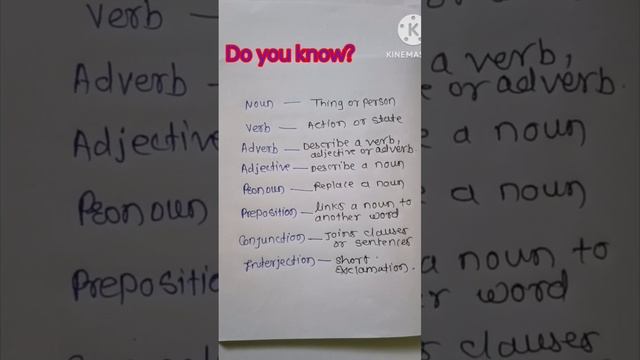 Do you know?
KINEMAS
Noun — Thing or person
Verb — Action or state
Adverb — Describe a verb,
adjective or adverb.
Adjective — Describe a noun
Pronoun — Replace a noun
Preposition — Links a noun to
another word
Conjunction — Joins clauses
or sentences
Interjection — Short
Exclamation.
Verb —
Adverb —
Adjective
Pronoun
Prepositio
a verb,
e or adverb.
e a noun
a noun
a noun to
er word
clauses